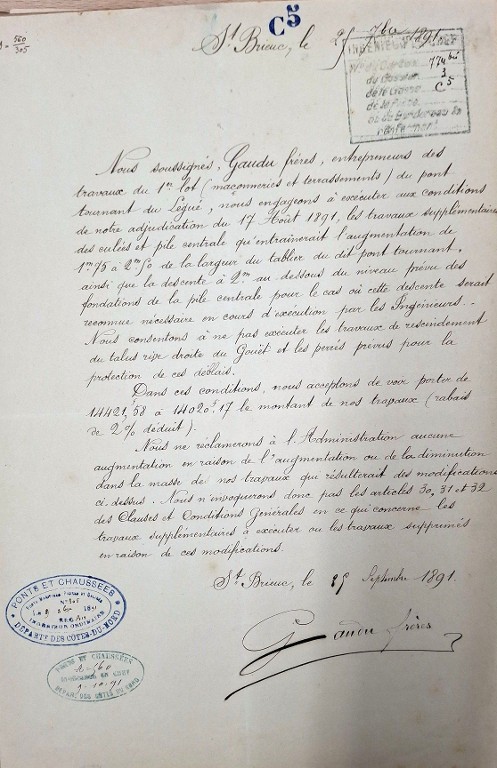 C5
560
305
St Brieuc, le 25 7bre 1891
INGÉNIEUR EN CHEF
774 bis
du Dossier 3
de la Liasse C5
de la Pièce
ou du Bordereau la
renfermant
Nous soussignés, Gaudu frères, entrepreneurs des
travaux du 1er lot (maçonneries et terrassements) du pont
tournant du Légué, nous engageons à exécuter aux conditions
de notre adjudication du 17 Août 1891, les travaux supplémentaires
des culées et pile centrale qu'entrainerait l'augmentation de
1m75 à 2m50 de la largeur du tablier du dit pont tournant,
ainsi que la descente à 2m au-dessous du niveau prévu des
fondations de la pile centrale pour le cas où cette descente serait
reconnue nécessaire en cours d'exécution par les Ingénieurs.
Nous consentons à ne pas exécuter les travaux de rescindement
du talus rive droite du Gouët et les perrés prévus pour la
protection de ces déblais.
Dans ces conditions, nous acceptons de voir porter de
14421f,58 à 14020f.17 le montant de nos travaux (rabais
de 2% déduit).
Nous ne réclamerons à l'Administration aucune
augmentation en raison de l'augmentation ou de la diminution
dans la masse de nos travaux qui résulterait des modifications
ci-dessus. Nous n'invoquerons donc pas les articles 30, 31 et 32
des Clauses et Conditions Générales en ce qui concerne les
travaux supplémentaires à exécuter ou les travaux supprimés
en raison de ces modifications.
St Brieuc, le 25 Septembre 1891.
Gaudu frères
PONTS ET CHAUSSÉES
INGÉNIEUR ORDINAIRE
DÉPART. DES CÔTES-DU-NORD
PONTS ET CHAUSSÉES
560
INGÉNIEUR EN CHEF
DÉPART. DES CÔTES DU NORD